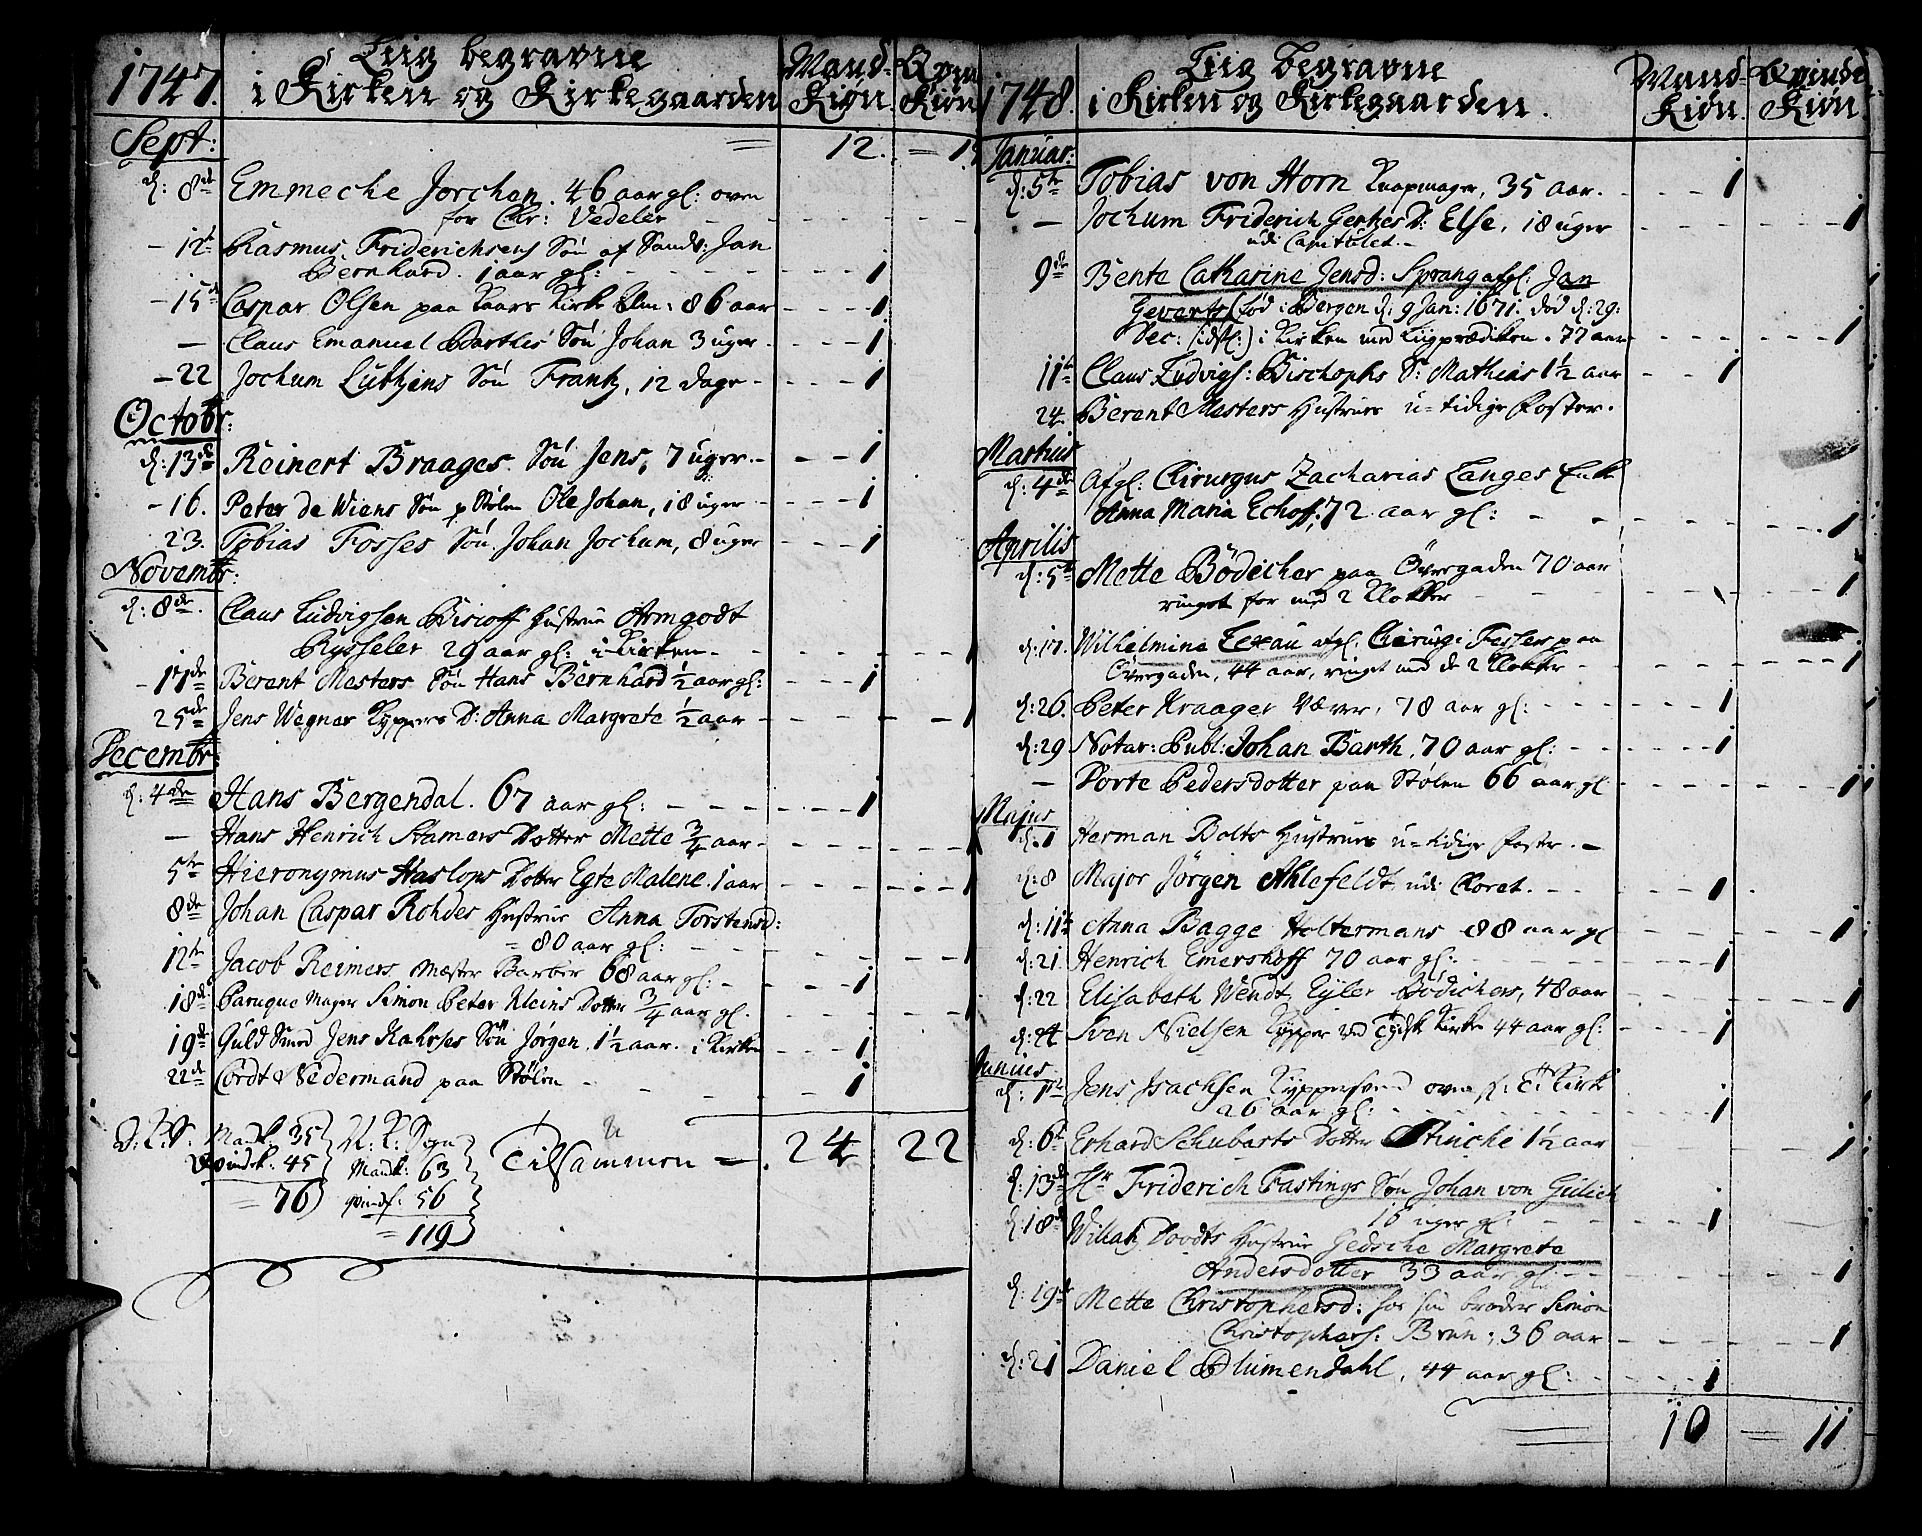 1747. Liig begravne Mand- Qvin
i Kirken og Kirkegaarden Kiøn. Kiøn
Sept: = 12. = 1
d: 8de Emmeche Jorchen. 46 aar gl: oven
for Chr: Vedeler
- 12te Rasmus Friderichsens Søn af Sandv: Jan
Bernhard. 1 aar gl: - - - 1
- 15de Caspar Olsen paa Kaars Kirke Alm: 86 aar - - 1
- Claus Emanuel Barthes Søn Johan 3 uger - - - 1
- 22 Jochum Lutkens Søn Frantz, 12 dage - - - 1
Octobr:
d: 13de Reinert Braages Søn Jens, 7 uger. - - - 1
- 16. Peter de Wiens Søn p Stølen Ole Johan, 18 uger - - - 1
23. Tobias Fosses Søn Johan Jochum, 8 uger - - - 1
Novembr:
d: 8de. Claus Ludvigsen Bisioff Hustrue Armgodt
Rysseler 29 aar gl: i Kirken - - - 1
- 11de Berent Mesters Søn Hans Bernhard 1/2 aar gl: - - - 1
25de Jens Wegner Kyppers D: Anna Margrete 1/2 aar - - - 1
Decembr:
d: 4de Hans Bergendal. 67 aar gl: - - - 1
- Hans Henrich Stamers Dotter Mette 3/4 aar - - - 1
5te Hieronymus Haslops Dotter Egte Malene. 1 aar - - - 1
8de Johan Caspar Rohdes Hustrue Anna Torstensd:
= 80 aar gl: - - - 1
12te Jacob Reimers Mæster Barber 68 aar gl: - - - 1
18de Paruque Mager Simon Peter Kleins Dotter 3/4 aar gl. - - - 1
19de Guld Smed Jens Kahrses Søn Jørgen, 1 1/2 aar. i Kirken - - - 1
22de Cordt Nedermand paa Stølen - - - 1
D: K: S. Mandk: 35 N: K: Sogn Tilsammen = 24 22
Qvindk: 45 Mandk: 63
= 76 qvindk: 56
= 119
1748. Liig begravne Mand- Qvinde
i Kirken og Kirkegaarden. Kiøn. Kiøn.
Januar:
d: 5te Tobias von Horn Knapmager, 35 aar. - - - 1
- Jochum Friderich Gertzes D: Else, 18 uger - - - 1
udi Capitulet. -
9de Bente Catharine Jensd: Sprang afgl: Jan
Geverts (fød i Bergen d: 9 Jan: 1671. død d: 29:
Dec: (idstl:) i Kirken med Liigprædiken. 77 aar - - - 1
11te Claus Ludvigs: Bischophs S: Mathias 1 1/2 aar - - 1
24. Berent Mesters Hustrues u-tidige Foster.
Martius
d: 4de Afgl: Chirurgus Zacharias Langes Enke
Anna Maria Echoff, 72 aar gl: - - - 1
Aprilis
d: 5te Mette Bödicher paa Övergaden 70 aar
ringet for med 2 Klokker - - - 1
d: 17. Wilhelmine Texau afgl. Chirurgi Fessers paa
Övergaden, 44 aar, ringet med de 2 Klokker - - - 1
d: 26. Peter Kraager Væver, 78 aar gl: - - - 1
d: 29 Notar: Publ: Johan Barth, 70 aar gl: - - - 1
- Dorte Pedersdotter paa Stølen 66 aar gl - - - 1
Majus
d. 1 Herman Bolts Hustrues u-tidige foster. -
d: 8 Major Jörgen Ahlefeldt udi Choret. - - - 1
d: 11te Anna Bagge Holtermans 88 aar gl - - - 1
d: 21. Henrich Emershoff 70 aar gl: - - - 1
d: 22 Elisabeth Wendt Eyler Bödichers, 48 aar - - - 1
d: 24 Sven Nielsen Kypper ved Tydsk Kirke 44 aar gl: - - - 1
Junius
d: 1te Jens Isachsen Kyppersvend oven f. T: Kirk
26 aar gl: - - - 1
d: 6te Erhard Schubarts Dotter Stinche 1 1/2 aar - - - 1
d: 13de Hr Friderich Fastings Søn Johan von Gülich
15 uger gl: - - - 1
d: 18de Willatz Doodts Hustrue Gedsche Margrete
Andersdotter 33 aar gl: - - 1
d: 19de Mette Christophersd: hos sin broder Simon
Christophers: Brun, 36 aar - - - 1
d: 21 Daniel Blumendahl, 44 aar gl: - - - 1
= 10 = 11